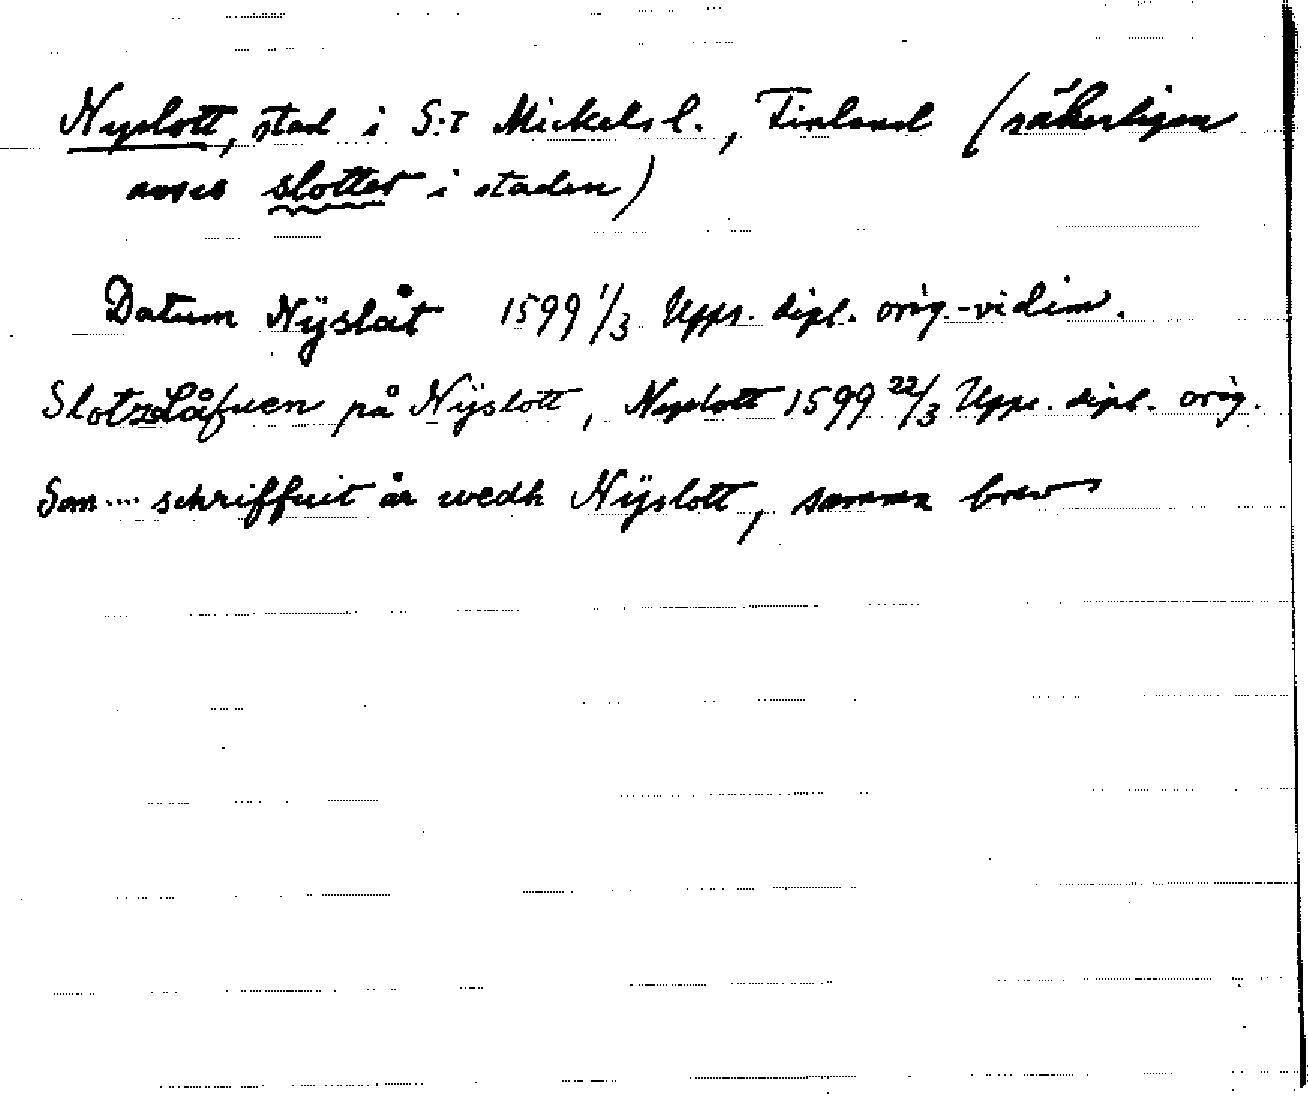 Nyslott, stad i S:t Mickels l., Finland (säkerligen
avses slottet i staden)
Datum Nÿslåt 1599 1/3 Upps. dipl. orig.-vidim.
Slotzlåfuen på Nÿslott, Nyslott 1599 22/3 Upps. dipl. orig.
Som .... schriffuit är wedh Nÿslott, samma brev